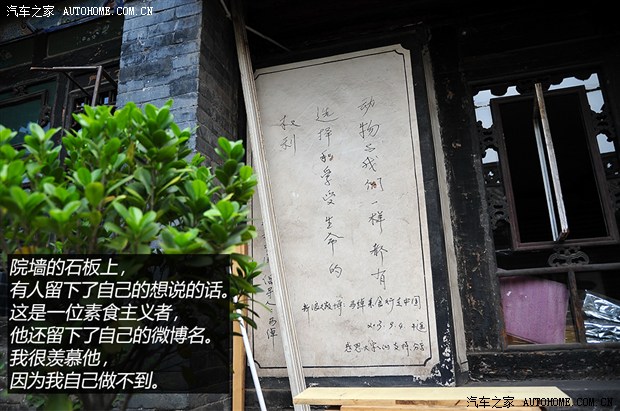 汽车之家 AUTOHOME.COM.CN
动物与我们一样都有
选择和享受生命的
权利
新浪微博
素食行走中国
院墙的石板上,
有人留下了自己的想说的话。
这是一位素食主义者,
他还留下了自己的微博名。
我很羡慕他,
因为我自己做不到。
汽车之家 AUTOHOME.COM.CN